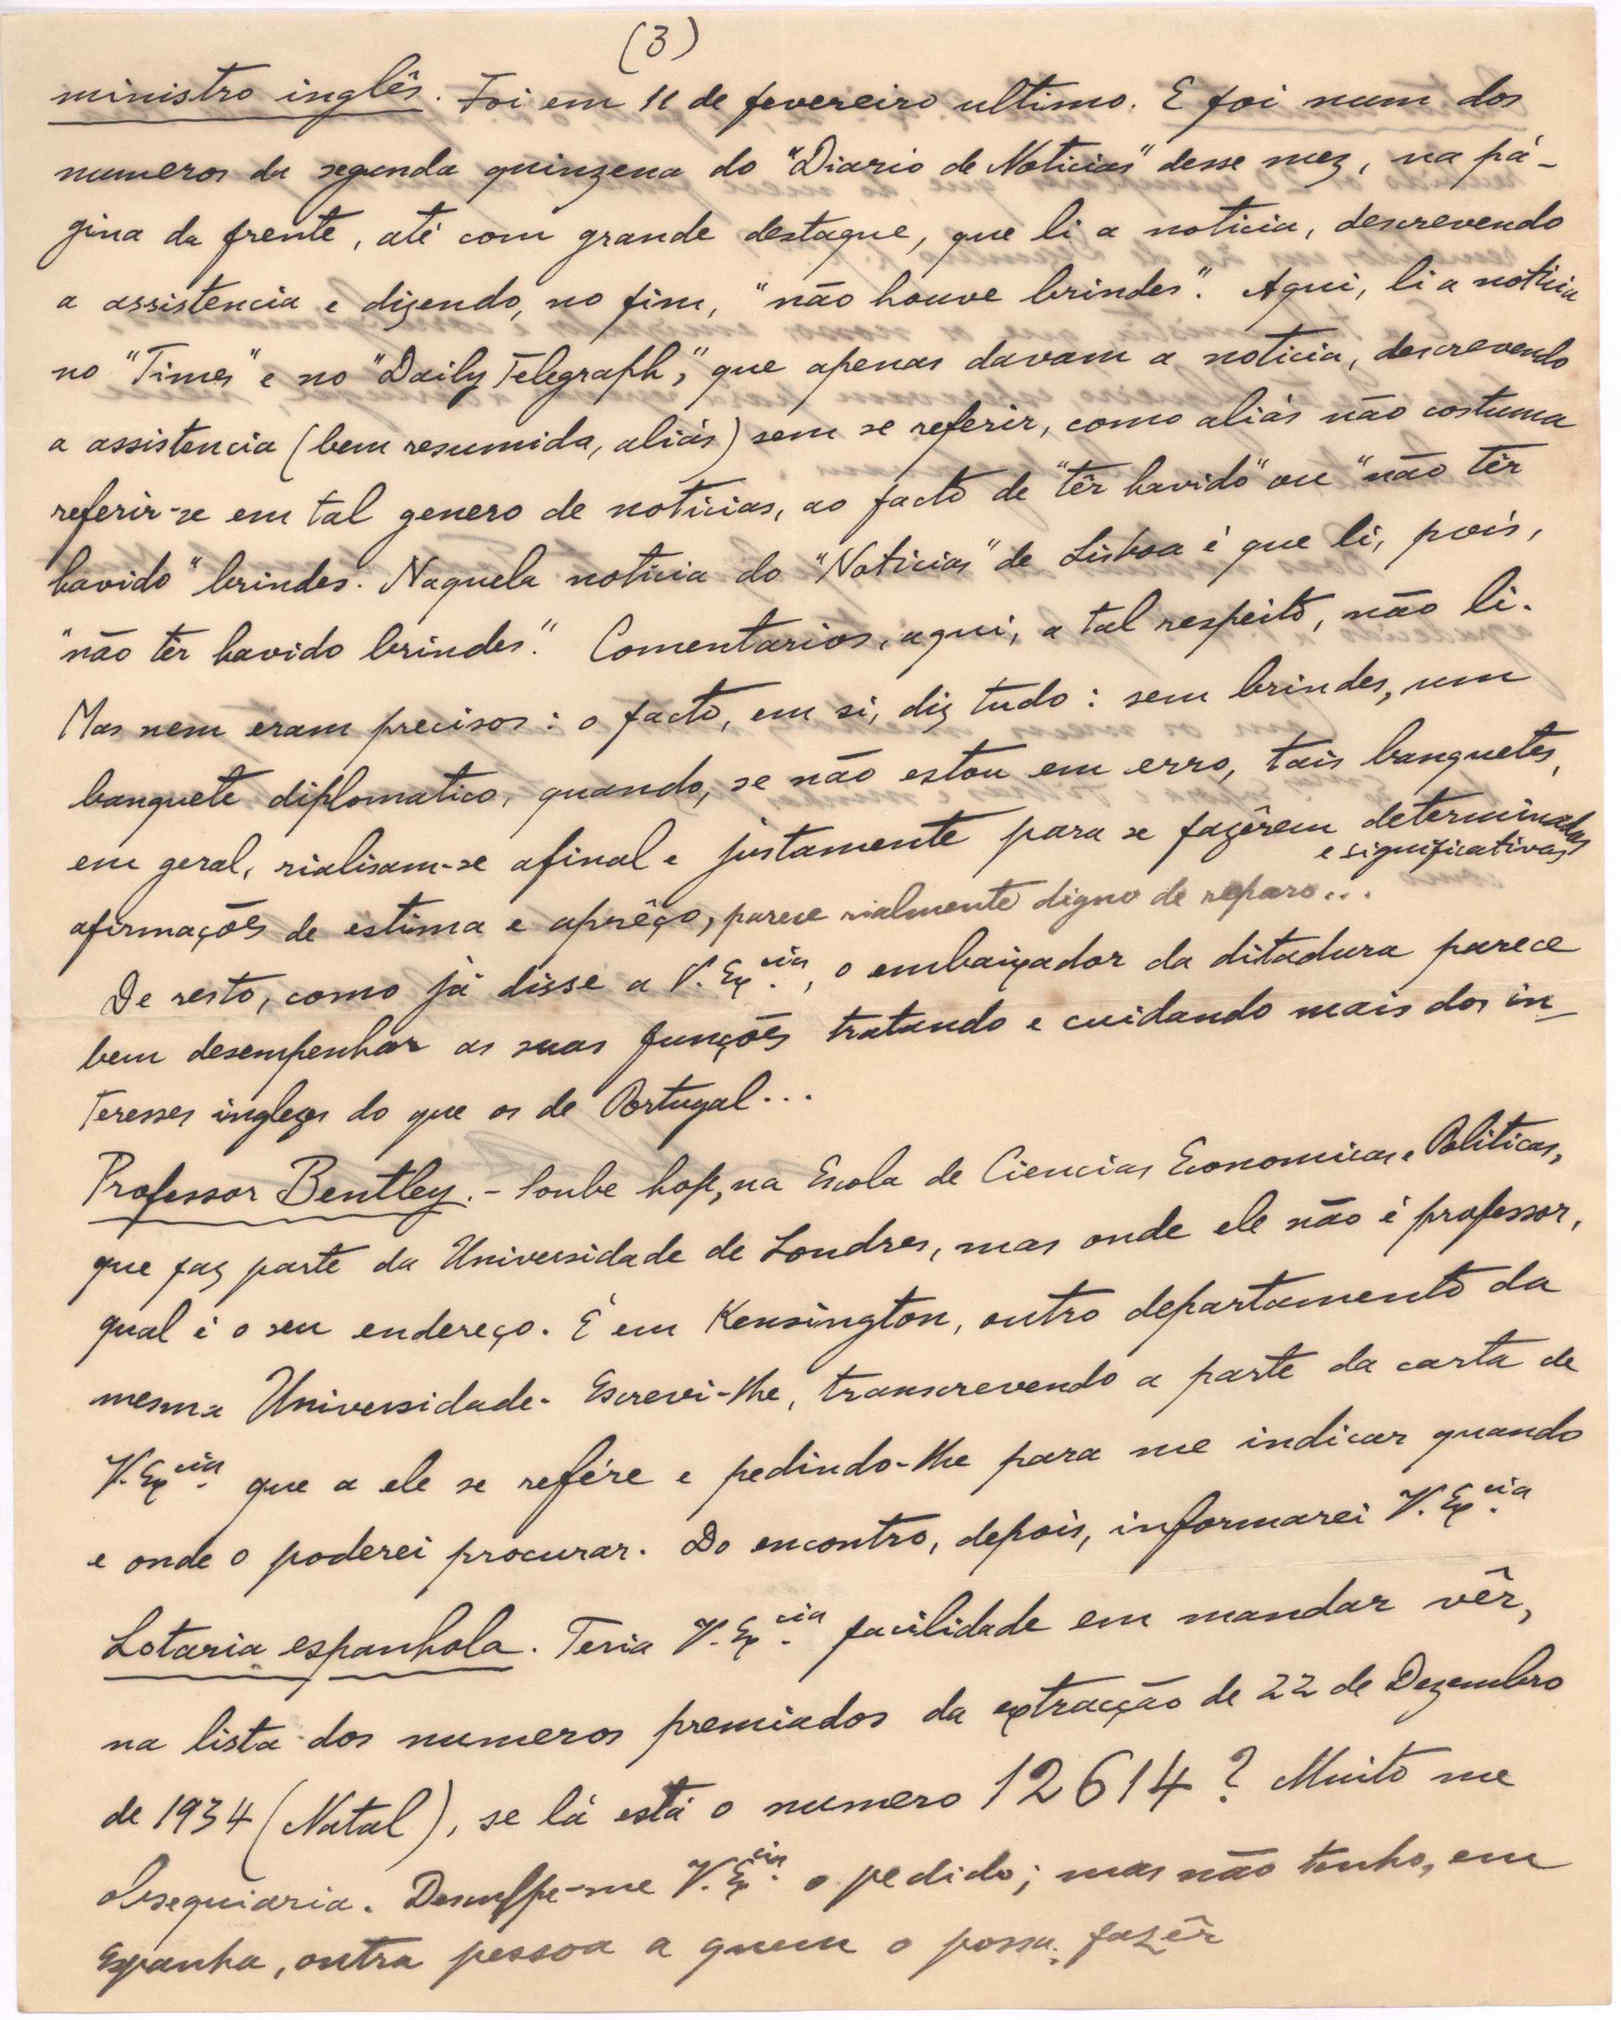 (3)
ministro inglês. Foi em 11 de fevereiro ultimo. E foi num dos
numeros da segunda quinzena do "Diario de Noticias" desse mez, na pá-
gina da frente, até com grande destaque, que li a noticia, descrevendo
a assistencia e dizendo, no fim, "não houve brindes". Aqui, li a noticia
no "Times" e no "Daily Telegraph", que apenas davam a noticia, descrevendo
a assistencia (bem resumida, aliás) sem se referir, como aliás não costuma
referir-se em tal genero de noticias, ao facto de "têr havido" ou "não têr
havido" brindes. Naquela noticia do "Noticias" de Lisboa é que li, pois,
"não têr havido brindes". Comentarios, aqui, a tal respeito, não li.
Mas nem eram precisos: o facto, em si, diz tudo: sem brindes, um
banquete diplomatico, quando, se não estou em erro, tais banquetes,
em geral, rialisam-se afinal e justamente para se fazêrem determinadas
e significativas
afirmações de estima e aprêço, parece rialmente digno de reparo...
De resto, como já disse a V. Ex.cia, o embaixador da ditadura parece
bem desempenhar as suas funções tratando e cuidando mais dos in-
teresses inglezes do que os de Portugal...
Professor Bentley. - Soube hoje, na Escola de Ciencias Economicas e Politicas,
que faz parte da Universidade de Londres, mas onde ele não é professor,
qual é o seu endereço. É em Kensington, outro departamento da
mesma Universidade. Escrevi-lhe, transcrevendo a parte da carta de
V. Ex.cia que a ele se refére e pedindo-lhe para me indicar quando
e onde o poderei procurar. Do encontro, depois, informarei V. Ex.cia
Lotaria espanhola. Teria V. Ex.cia facilidade em mandar vêr,
na lista dos numeros premiados da extracção de 22 de Dezembro
de 1934 (Natal), se lá está o numero 12614? Muito me
obsequiaria. Desculpe-me V. Ex.cia o pedido; mas não tenho, em
Espanha, outra pessoa a quem o possa fazêr